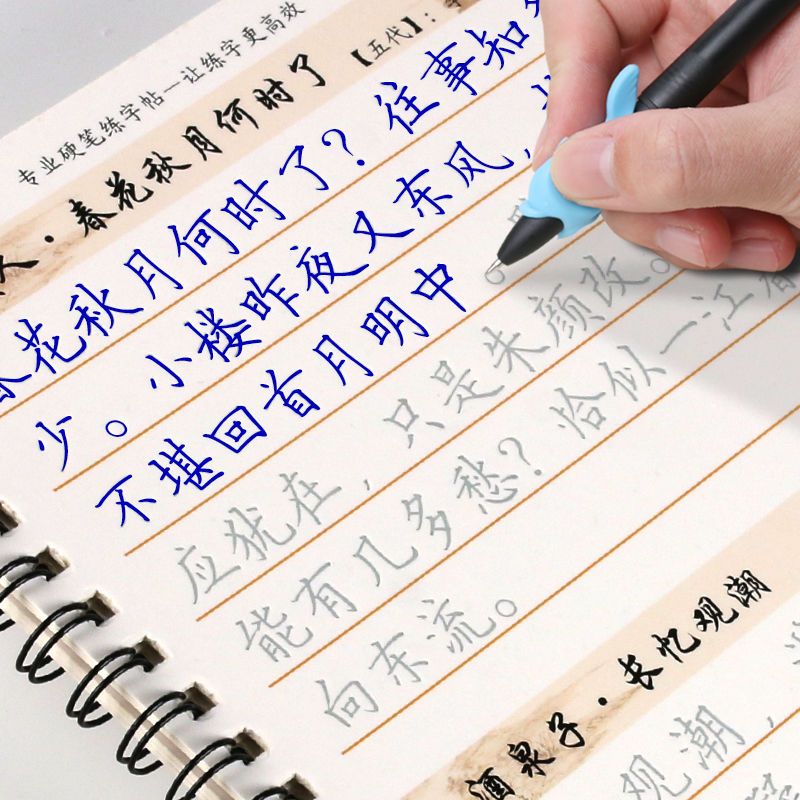 专业硬笔练字帖一让练字更高效
人·春花秋月何时了 【五代】:
春花秋月何时了?往事知多
少。小楼昨夜又东风,
不堪回首月明中
应犹在,只是朱颜改。
能有几多愁?恰似一江春
向东流。
酒泉子·长忆观潮
观潮,